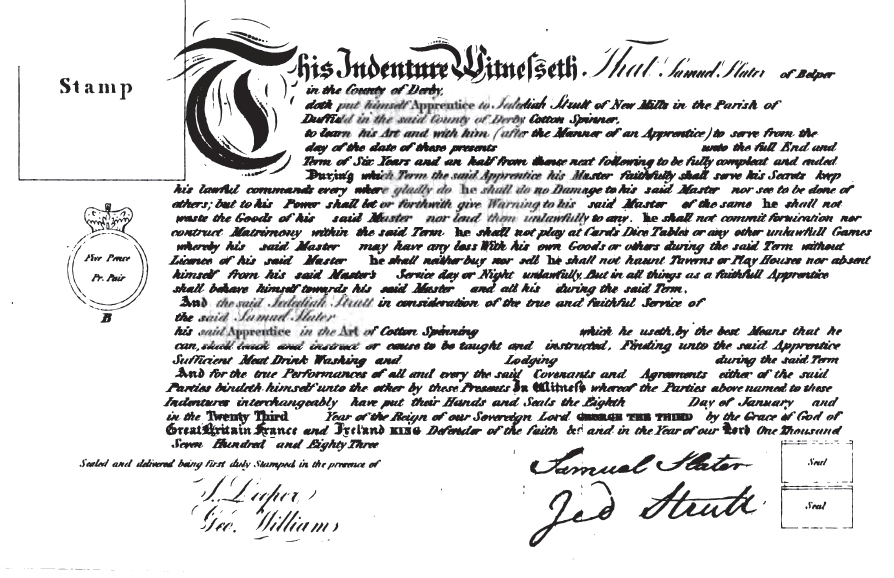 Stamp
This Indenture Witnesseth That Samuel Slater of Belper
in the County of Derby,
doth put himself Apprentice to Jedediah Strutt of New Mills in the Parish of
Duffield in the said County of Derby Cotton Spinner,
to learn his Art and with him (after the Manner of an Apprentice) to serve from the
day of the date of these presents unto the full End and
Term of Six Years and an half from thence next following to be fully compleat and ended
During which Term the said Apprentice his Master faithfully shall serve his Secrets keep
his lawful commands every where gladly do he shall do no Damage to his said Master nor see to be done of
others; but to his Power shall let or forthwith give Warning to his said Master of the same he shall not
waste the Goods of his said Master nor lend them unlawfully to any. he shall not commit fornication nor
contract Matrimony within the said Term he shall not play at Cards Dice Tables or any other unlawfull Games
whereby his said Master may have any loss With his own Goods or others during the said Term without
Licence of his said Master he shall neither buy nor sell he shall not haunt Taverns or Play Houses nor absent
himself from his said Master's Service day or Night unlawfully. But in all things as a faithfull Apprentice
shall behave himself towards his said Master and all his during the said Term.
And the said Jedediah Strutt in consideration of the true and faithful Service of
the said Samuel Slater
his said Apprentice in the Art of Cotton Spinning which he useth, by the best Means that he
can, shall teach and instruct or cause to be taught and instructed, Finding unto the said Apprentice
Sufficient Meat Drink Washing and Lodging during the said Term
And for the true Performances of all and every the said Covenants and Agreements either of the said
Parties bindeth himself unto the other by these Presents In Witness whereof the Parties above named to these
Indentures interchangeably have put their Hands and Seals the Eighth Day of January and
in the Twenty Third Year of the Reign of our Sovereign Lord GEORGE THE THIRD by the Grace of God of
Great Britain France and Ireland KING Defender of the faith &c and in the Year of our Lord One Thousand
Seven Hundred and Eighty Three
Five Pence
Pr. Pair
B
Sealed and delivered being first duly Stamped in the presence of
S. Leeper
Geo. Williams
Samuel Slater
Seal
Jed Strutt
Seal